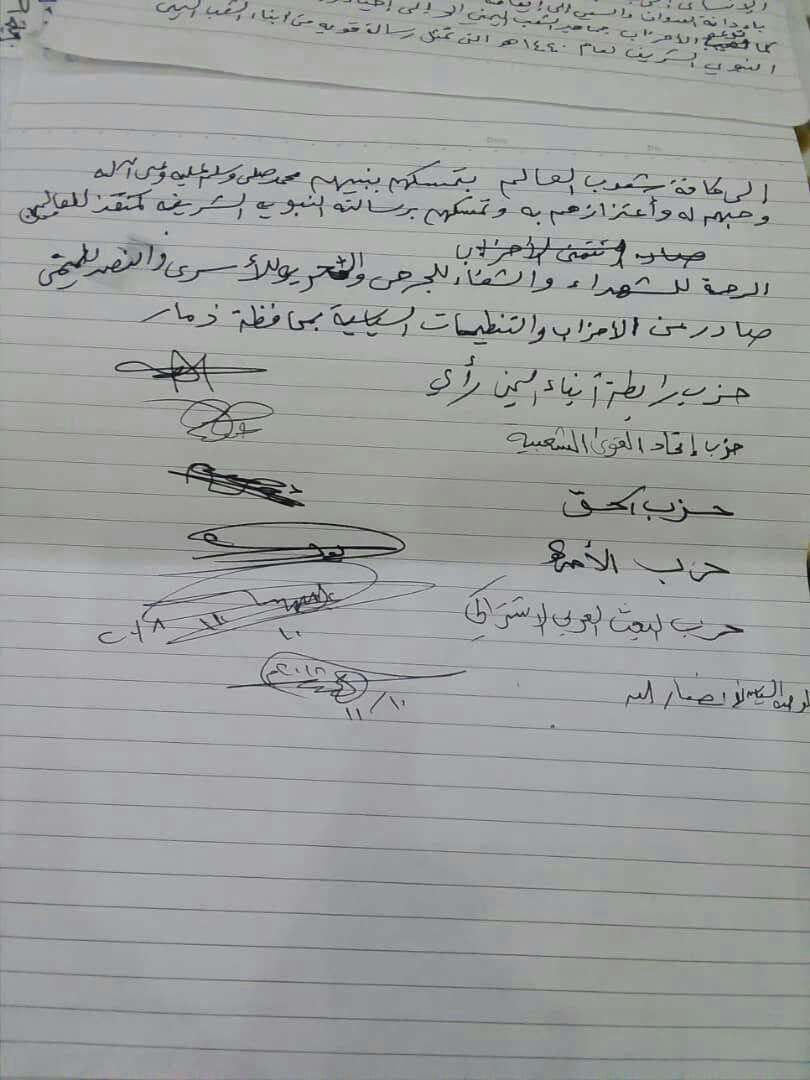 بإدانة العدوان والسعي الى
كما تدعو الأحزاب جماهير الشعب اليمني الى إحياء
النبوي الشريف لعام ١٤٤٠هـ التي تمثل رسالة قوية من أبناء الشعب اليمني
الى كافة شعوب العالم بتمسكهم بنبيهم محمد صلى وسلم عليه وعلى آله
وحبهم له وأعتزازهم به وتمسكهم برسالته النبويه الشريفه كمنقذ للعالمين
صادر الأحزاب
الرحمة للشهداء والشفاء للجرحى والتحرير للأسرى والنصر لليمن
صادر عن الأحزاب والتنظيمات السياسية بمحافظة ذمار
حزب رابطة أبناء اليمن رأي
حزب إتحاد القوى الشعبيه
حزب الحق
حزب الأمة
حزب البعث العربي الاشتراكي
١٠
السياسي لأنصار الله
٢٠١٨م
١٠/١١